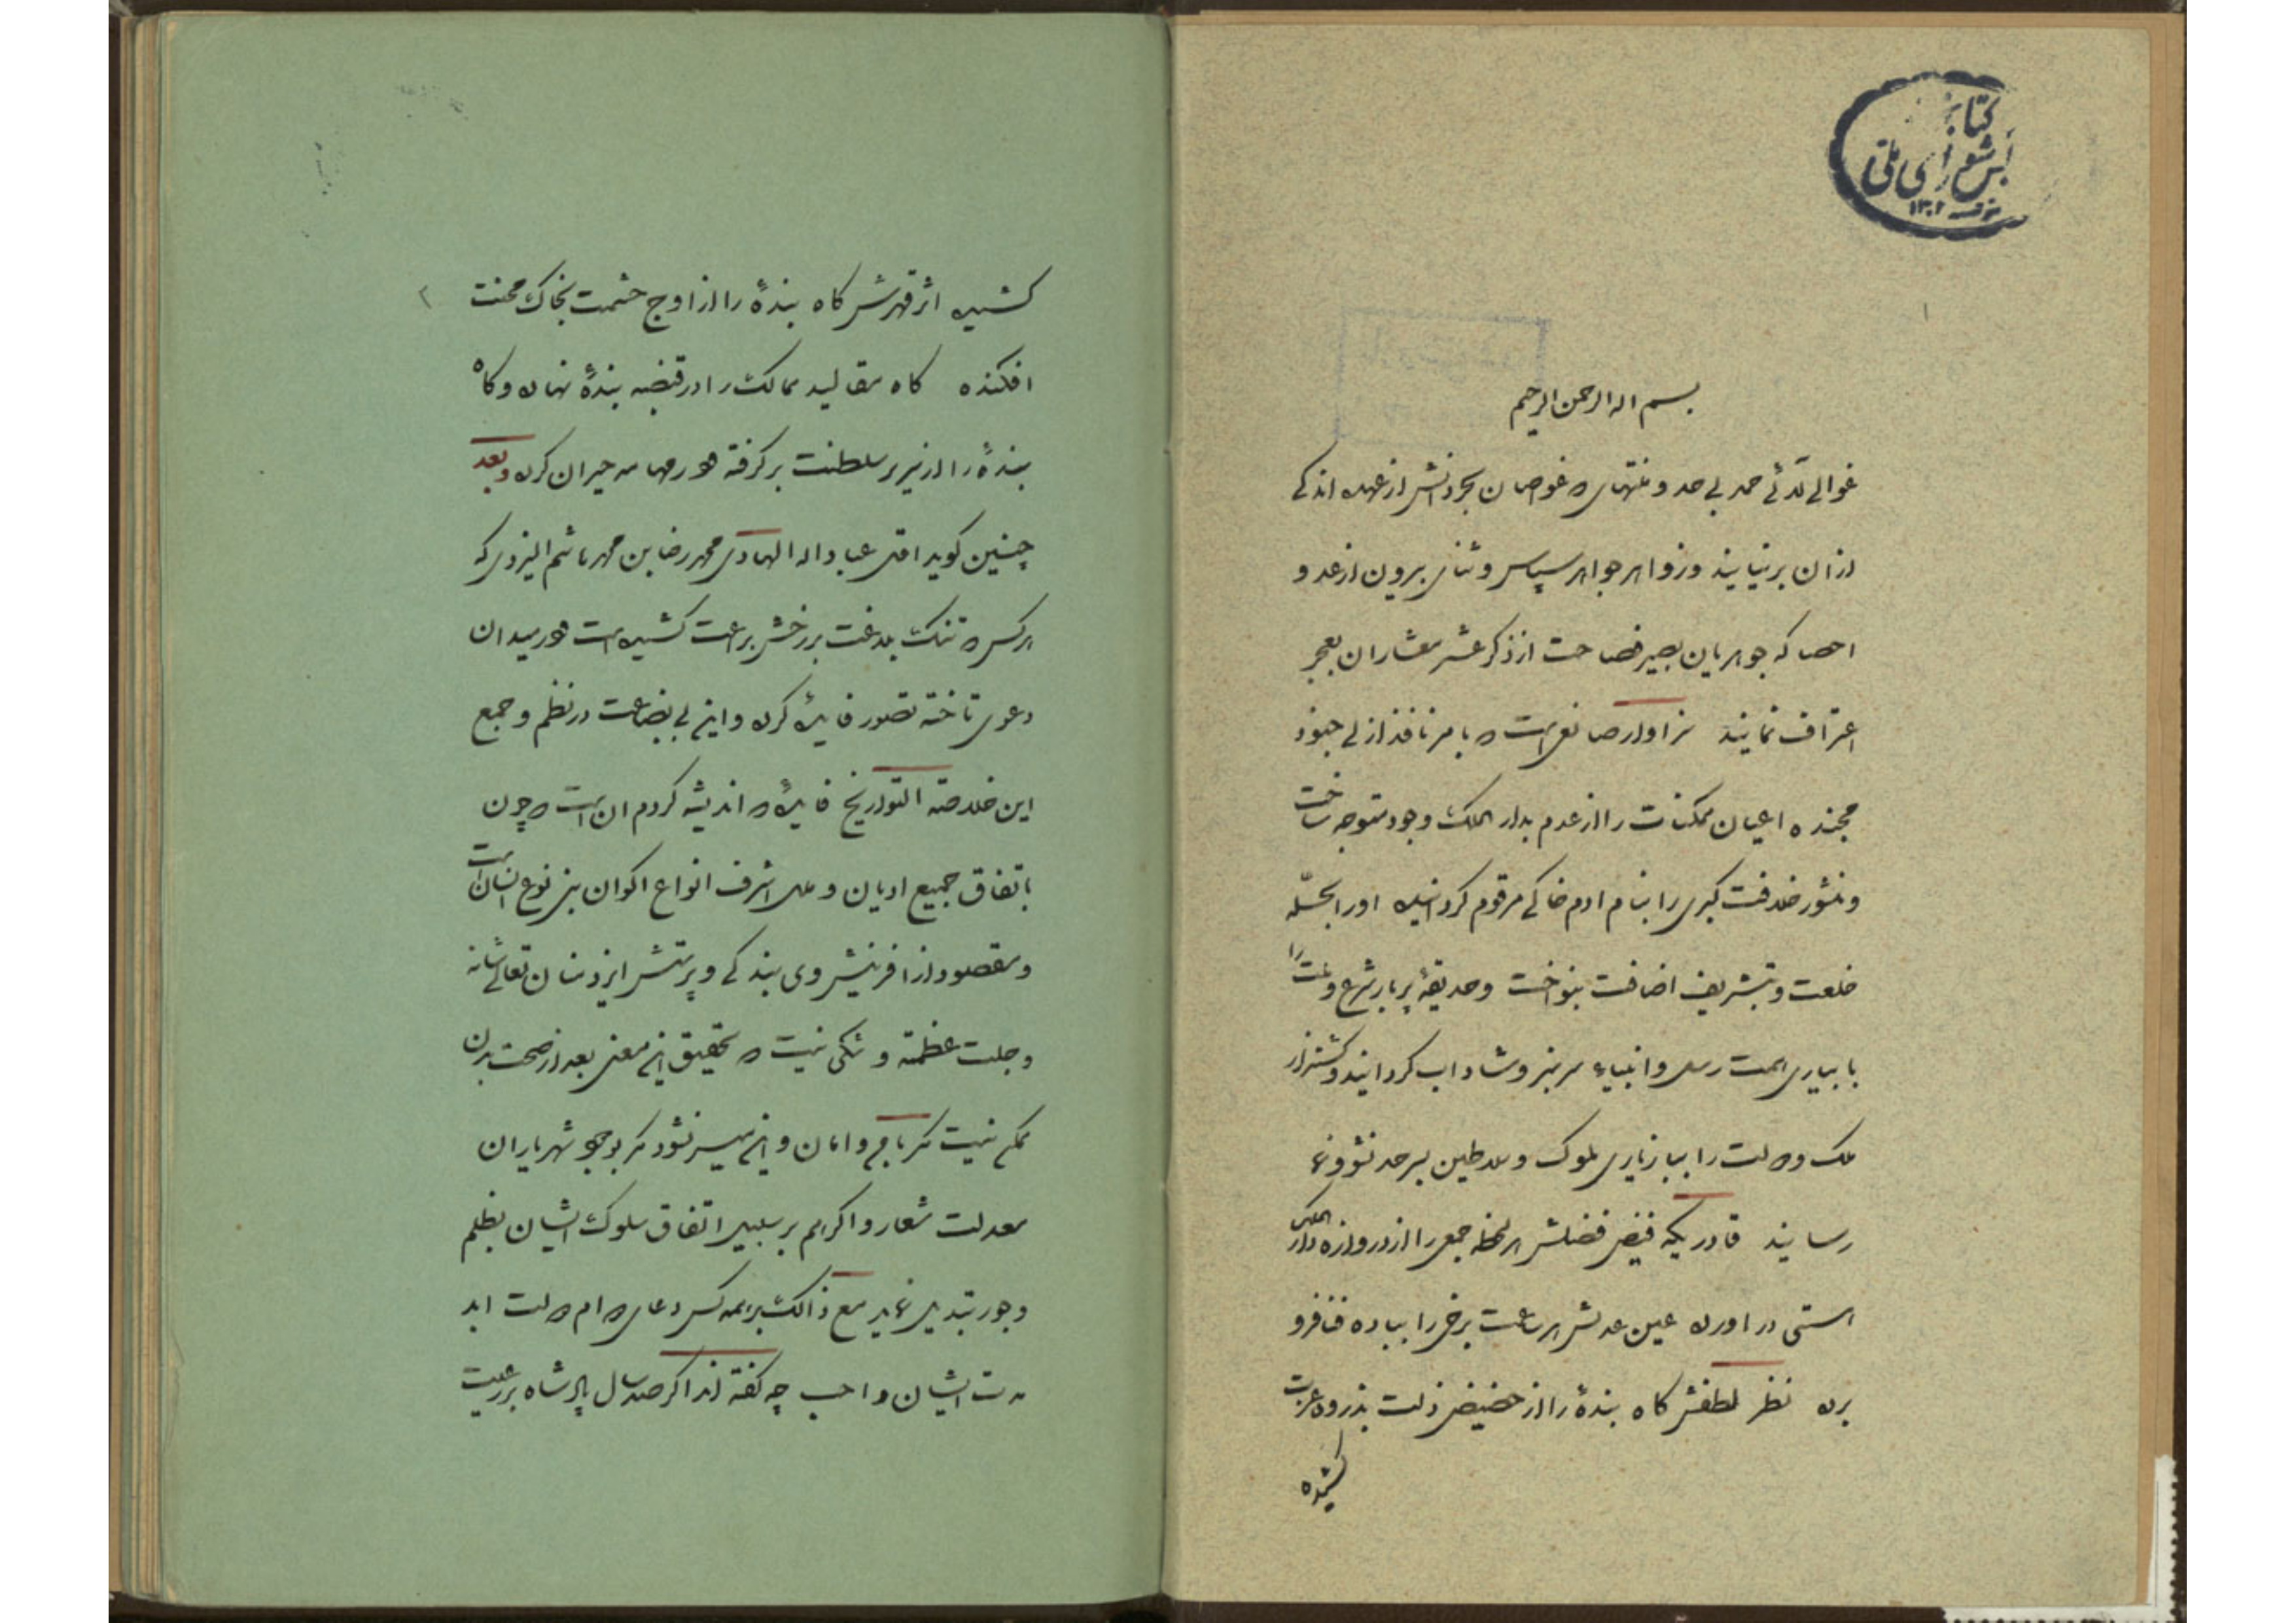 ۱
بسم اله الرحمن الرحیم
غوالی لآلئ حمد بی حد و منتهای که غواصان بحر دانش از عهده اندکی
از ان برنیایند و زواهر جواهر سپاس و ثنای برون از عد و
احصا که جوهریان بصیر فصاحت از ذکر عشر معشار ان بعجز
اعتراف نمایند سزاوار صانعی است که بامر نافذ ازلی جنود
مجنده اعیان ممکنات را از عدم بدار الملک وجود متوجه ساخت
و منشور خلافت کبری را بنام ادم خاکی مرقوم کردانیده اورا بحلّه
خلعت و تشریف اضافت بنواخت و حدیقهٔ پر بار شرع و ملت را
بابیاری همت رسل و انبیاء سرسبز و شاداب کردانید و کشتزار
ملک و دولت را ببازیاری ملوک و سلاطین بسرحد نشو و نما
رسانید قادریکه فیض فضلش هر لحظه جمعی را از دروازه دار الملک
هستی در اورده عین عدلش هر ساعت برخی را بباده فنا فرو
برده نظر لطفش کاه بندهٔ را از حضیض ذلت بذروه عزت
کشیده
کشیده اثر قهرش کاه بندهٔ را از اوج حشمت بخاک محنت
۲
افکنده کاه مقالید ممالک را در قبضه بندهٔ نهاده و کاه
بندهٔ را از سریر سلطنت بر کرفته در حیران کرده و بعد
چنین کوید اقل عباد اله الهادی محمد رضا بن محمد هاشم الیزدی که
هر کس که تنک بلاغت بر رخش براعت کشیده است در میدان
دعوی تاخته تصور فایده کرده و این بی بضاعت در نظم و جمع
این خلاصته التواریخ فایدهٔ که اندیشه کردم ان است که چون
باتفاق جمیع ادیان و ملل اشرف انواع اکوان بنی نوع انسان است
و مقصود از افرینش وی بندکی و پرستش ایزد منان تعالی شانه
و جلت عظمته و شکی نیست که تحقیق این معنی بعد از صحت بدن
ممکن نیست مکر بامن و امان و این میسر نشود مکر بوجود شهریاران
معدلت شعار و اکر هم بر سبیل اتفاق سلوک ایشان بظلم
و جور تبدیل نماید مع ذالک بر همه کس دعای دوام دولت ابد
مدت ایشان واجب چه کفته اند اکر صد سال پادشاه بر رعیت